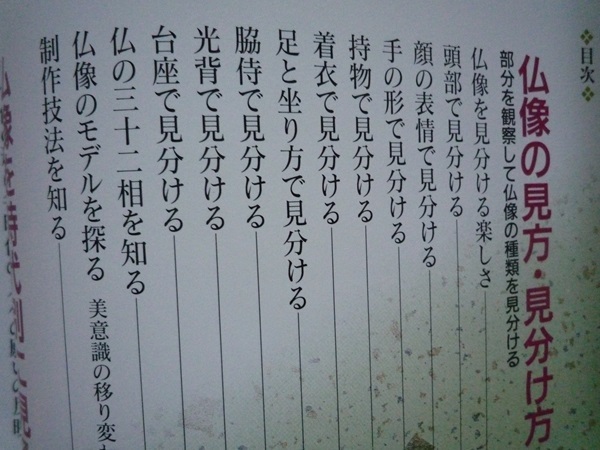 目次
仏像の見方・見分け方
部分を観察して仏像の種類を見分ける
仏像を見分ける楽しさ
頭部で見分ける
顔の表情で見分ける
手の形で見分ける
持物で見分ける
着衣で見分ける
足と坐り方で見分ける
脇侍で見分ける
光背で見分ける
台座で見分ける
仏の三十二相を知る
仏像のモデルを探る 美意識の移り変
制作技法を知る
仏像を時代別に見